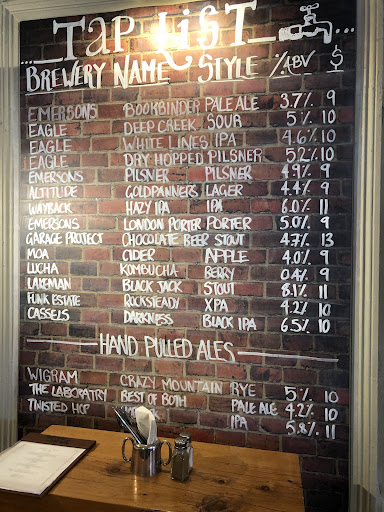 TAP LIST
BREWERY NAME STYLE %ABV $
EMERSONS BOOKBINDER PALE ALE 3.7% 9
EAGLE DEEP CREEK SOUR 5% 10
EAGLE WHITE LINES IPA 4.6% 10
EAGLE DRY HOPPED PILSNER 5.2% 10
EMERSONS PILSNER PILSNER 4.9% 9
ALTITUDE GOLDPANNERS LAGER 4.4% 9
WAYBACK HAZY IPA IPA 6.0% 11
EMERSONS LONDON PORTER PORTER 5.0% 9
GARAGE PROJECT CHOCOLATE BEER STOUT 4.7% 13
MOA CIDER APPLE 4.0% 9
LUCHA KOMBUCHA BERRY 0.4% 9
LAKEMAN BLACK JACK STOUT 8.1% 11
FUNK ESTATE ROCKSTEADY XPA 4.2% 10
CASSELS DARKNESS BLACK IPA 6.5% 10
HAND PULLED ALES
WIGRAM CRAZY MOUNTAIN RYE 5% 10
THE LABORATRY BEST OF BOTH PALE ALE 4.2% 10
TWISTED HOP IPA 5.8% 11